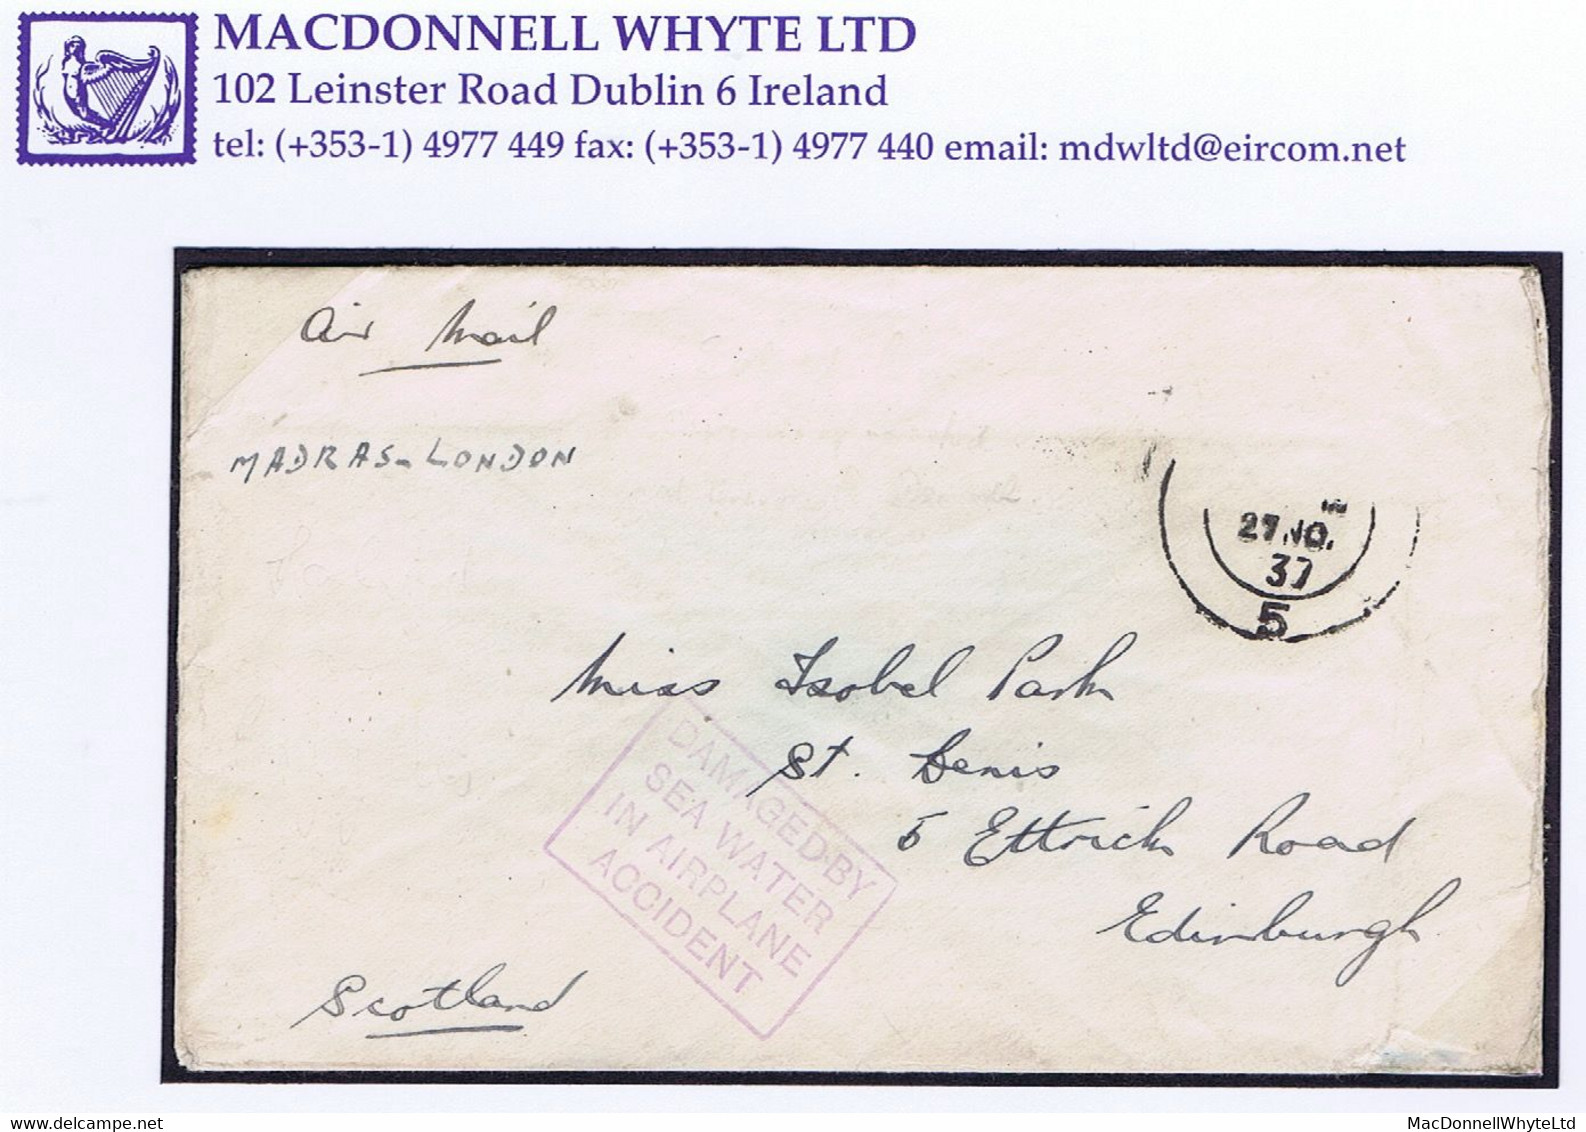 MACDONNELL WHYTE LTD
102 Leinster Road Dublin 6 Ireland
tel: (+353-1) 4977 449 fax: (+353-1) 4977 440 email: mdwltd@eircom.net
Air Mail
MADRAS-LONDON
27 NO.
37
5
Miss Isobel Park
St. Denis
5 Ettrick Road
Edinburgh
Scotland
DAMAGED BY
SEA WATER
IN AIRPLANE
ACCIDENT
delcampe.net
MacDonnellWhyteLtd